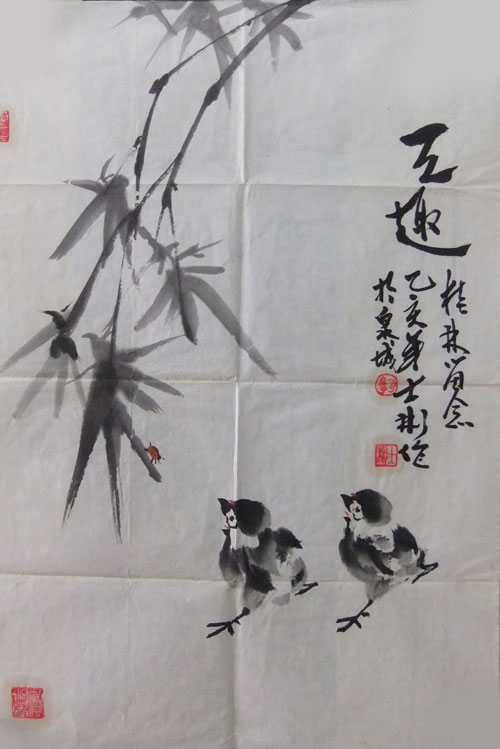 天趣
桂林留念
乙亥弟士彬作
於泉城